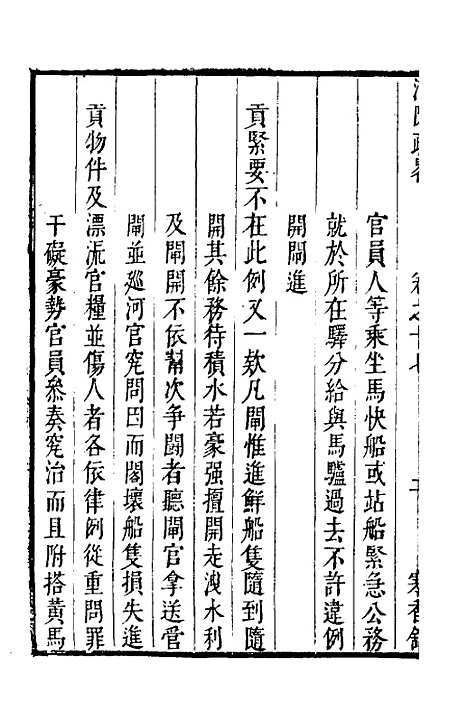 卷之十七
官員人等乘坐馬快船或站船緊急公務
就於所在驛分給與馬驢過去不許違例
開閘進
貢緊要不在此例又一款凡閘惟進鮮船隻隨到隨
開其餘務待積水若豪強擅開走洩水利
及閘開不依幫次争鬪者聽閘官拿送管
閘並廵河官究問因而閣壞船隻損失進
貢物件及漂流官糧並傷人者各依律例從重問罪
干礙豪勢官員叅奏究治而且附搭黄馬